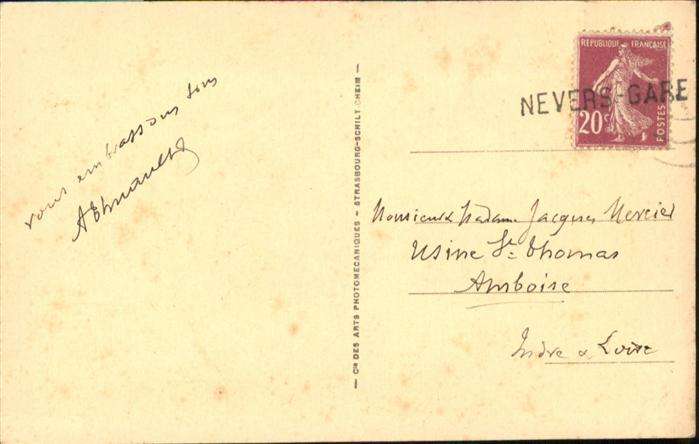 vous embrassons tous
— Cie DES ARTS PHOTOMECANIQUES — STRASBOURG-SCHILT HEIM —
RÉPUBLIQUE FRANÇAISE
20c
POSTES
NEVERS-GARE
Monsieur & Madame Jacques Mercier
Usine St Thomas
Amboise
Indre & Loire